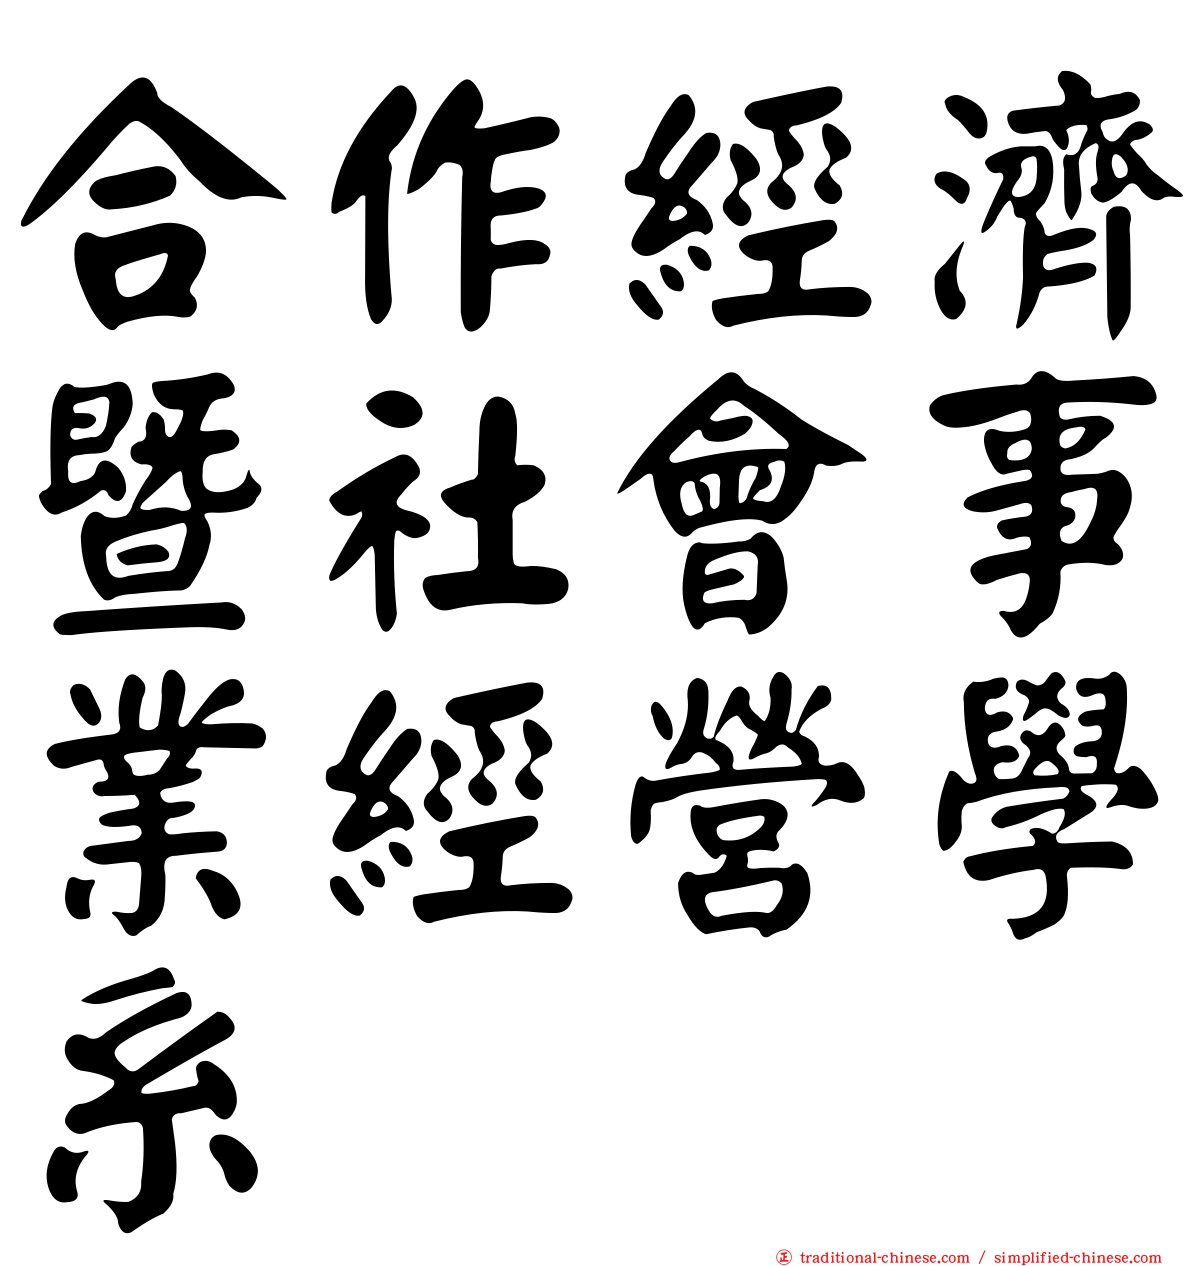 合作經濟
暨社會事
業經營學
系
正 traditional-chinese.com / simplified-chinese.com